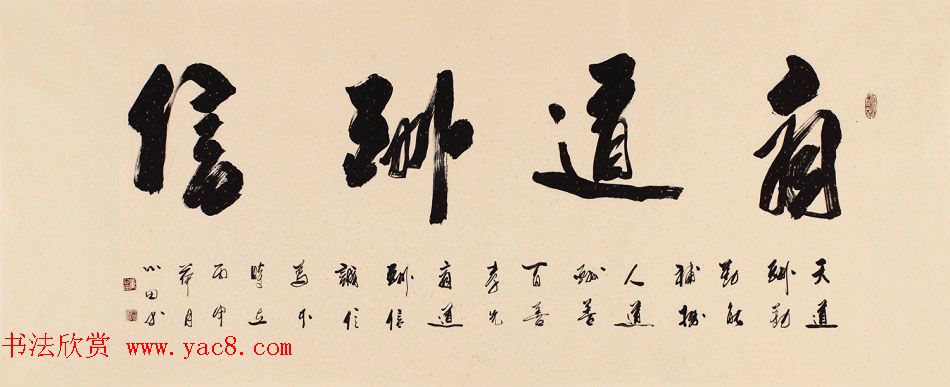 商道酬信
天道
酬勤
勤能
補拙
人道
酬善
百善
孝先
商道
酬信
誠信
為本
時在
丙申
荷月
小田书
书法欣赏 www.yac8.com